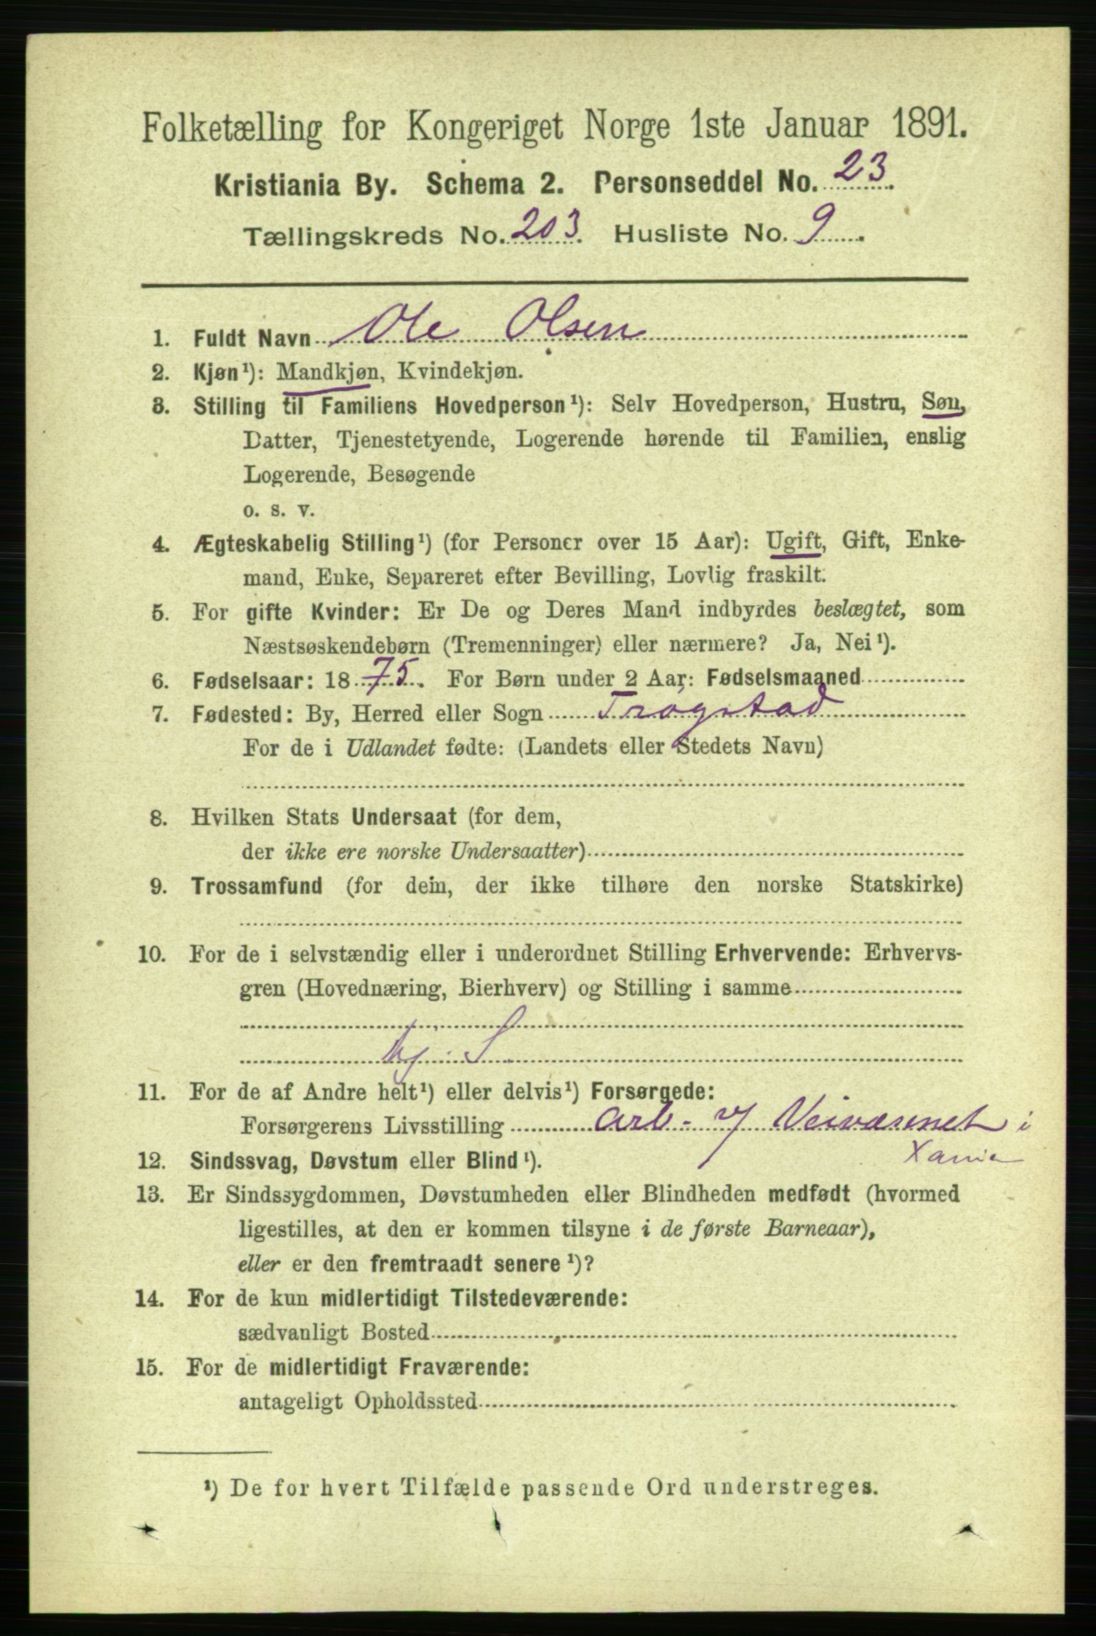 Folketælling for Kongeriget Norge 1ste Januar 1891.
Kristiania By. Schema 2. Personseddel No. 23.
Tællingskreds No. 203. Husliste No. 9.
1. Fuldt Navn Ole Olsen
2. Kjøn¹): Mandkjøn, Kvindekjøn.
3. Stilling til Familiens Hovedperson¹): Selv Hovedperson, Hustru, Søn,
Datter, Tjenestetyende, Logerende hørende til Familien, enslig
Logerende, Besøgende
o. s. v.
4. Ægteskabelig Stilling¹) (for Personer over 15 Aar): Ugift, Gift, Enke-
mand, Enke, Separeret efter Bevilling, Lovlig fraskilt.
5. For gifte Kvinder: Er De og Deres Mand indbyrdes beslægtet, som
Næstsøskendebørn (Tremenninger) eller nærmere? Ja, Nei¹).
6. Fødselsaar: 1875. For Børn under 2 Aar: Fødselsmaaned
7. Fødested: By, Herred eller Sogn Trøgstad
For de i Udlandet fødte: (Landets eller Stedets Navn)
8. Hvilken Stats Undersaat (for dem,
der ikke ere norske Undersaatter)
9. Trossamfund (for dem, der ikke tilhøre den norske Statskirke)
10. For de i selvstændig eller i underordnet Stilling Erhvervende: Erhvervs-
gren (Hovednæring, Bierhverv) og Stilling i samme
S.
11. For de af Andre helt¹) eller delvis¹) Forsørgede:
Forsørgerens Livsstilling Arb. v/ Veivæsenet i
Xania
12. Sindssvag, Døvstum eller Blind¹).
13. Er Sindssygdommen, Døvstumheden eller Blindheden medfødt (hvormed
ligestilles, at den er kommen tilsyne i de første Barneaar),
eller er den fremtraadt senere¹)?
14. For de kun midlertidigt Tilstedeværende:
sædvanligt Bosted
15. For de midlertidigt Fraværende:
antageligt Opholdssted
¹) De for hvert Tilfælde passende Ord understreges.